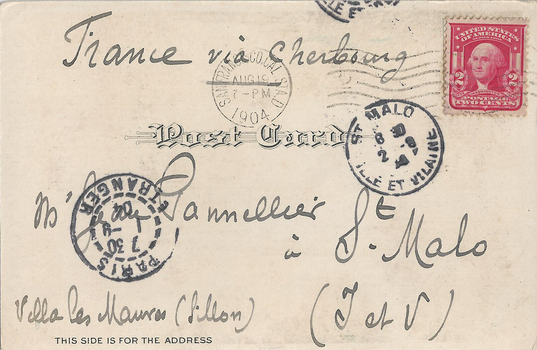 France via Cherbourg
SAN FRANCISCO, CAL. STA. D
AUG 18
7 - PM
1904
UNITED STATES
OF AMERICA
2 2
POSTAGE
TWO CENTS
ST MALO
ILLE ET VILAINE
Post Card
PARIS
ETRANGER
7 30
Pannellier
à St. Malo
Villa les Mauves (Sillon)
(I et V)
THIS SIDE IS FOR THE ADDRESS